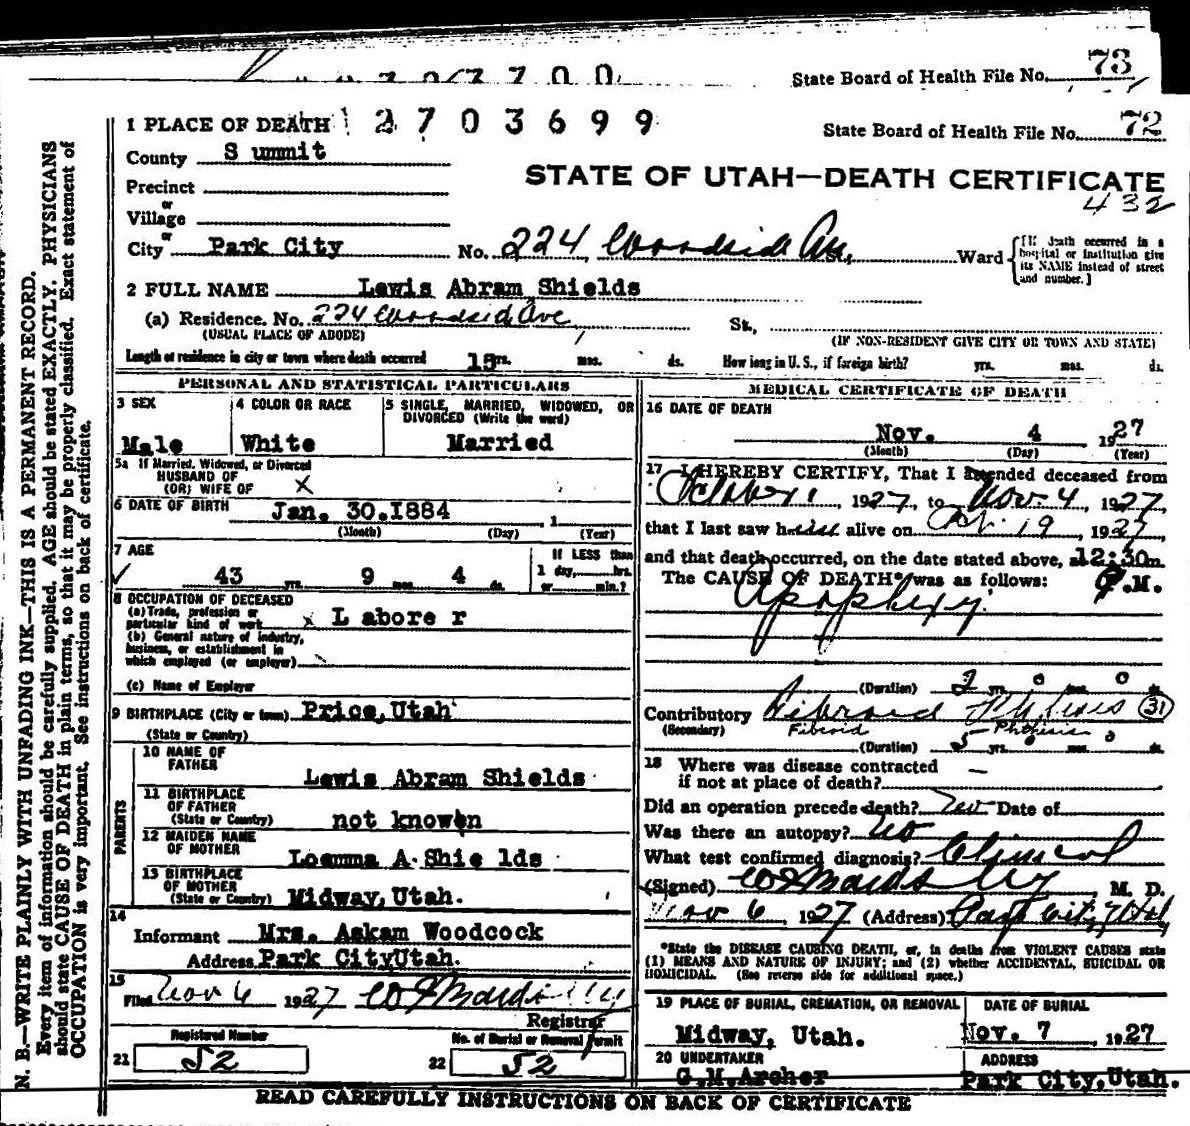 State Board of Health File No. 73
1 PLACE OF DEATH 2703699
State Board of Health File No. 72
County Summit
STATE OF UTAH—DEATH CERTIFICATE
432
Precinct
or
Village
or
City Park City No. 224 Woodside Av. Ward
{If death occurred in a hospital or institution give its NAME instead of street and number.}
2 FULL NAME Lewis Abram Shields
(a) Residence. No. 224 Woodsid Ave St.,
(USUAL PLACE OF ABODE) (IF NON-RESIDENT GIVE CITY OR TOWN AND STATE)
Length of residence in city or town where death occurred 15 yrs. mos. ds. How long in U. S., if foreign birth? yrs. mos. ds.
PERSONAL AND STATISTICAL PARTICULARS
3 SEX
Male
4 COLOR OR RACE
White
5 SINGLE, MARRIED, WIDOWED, OR DIVORCED (Write the word)
Married
5a If Married, Widowed, or Divorced
HUSBAND OF
(OR) WIFE OF X
6 DATE OF BIRTH Jan. 30.1884
(Month) (Day) (Year)
7 AGE
43 yrs. 9 mos. 4 ds.
If LESS than
1 day, hrs.
or min.?
8 OCCUPATION OF DECEASED
(a) Trade, profession or
particular kind of work x Labore r
(b) General nature of industry,
business, or establishment in
which employed (or employer)
(c) Name of Employer
9 BIRTHPLACE (City or town) Price, Utah
(State or Country)
PARENTS
10 NAME OF
FATHER Lewis Abram Shields
11 BIRTHPLACE
OF FATHER
(State or Country) not known
12 MAIDEN NAME
OF MOTHER Loemma A. Shie lds
13 BIRTHPLACE
OF MOTHER
(State or Country) Midway, Utah.
14
Informant Mrs. Askam Woodcock
Address Park City Utah.
15
Filed Nov 6 1927
Registrar
Registered Number
21 52
No. of Burial or Removal Permit
22 52
MEDICAL CERTIFICATE OF DEATH
16 DATE OF DEATH
Nov. 4, 1927
(Month) (Day) (Year)
17 I HEREBY CERTIFY, That I attended deceased from
October 1, 1927, to Nov. 4, 1927,
that I last saw h alive on Oct. 19, 1927,
and that death occurred, on the date stated above, at 12:30 m.
P.M.
The CAUSE OF DEATH* was as follows:
Apoplexy
(Duration) 2 yrs. 0 mos. 0 ds.
Contributory Fibroid Phthisis (31)
(Secondary) Fibroid Phthisis
(Duration) 5 yrs. 0 mos. 0 ds.
18 Where was disease contracted
if not at place of death? —
Did an operation precede death? No Date of
Was there an autopsy? no
What test confirmed diagnosis? Clinical
(Signed) M. D.
Nov 6, 1927 (Address) Park City, Utah
*State the DISEASE CAUSING DEATH, or, in deaths from VIOLENT CAUSES state
(1) MEANS AND NATURE OF INJURY; and (2) whether ACCIDENTAL, SUICIDAL OR
HOMICIDAL. (See reverse side for additional space.)
19 PLACE OF BURIAL, CREMATION, OR REMOVAL
Midway, Utah.
DATE OF BURIAL
Nov. 7 1927
20 UNDERTAKER
G.M.Archer
ADDRESS
Park City, Utah.
READ CAREFULLY INSTRUCTIONS ON BACK OF CERTIFICATE
N. B.—WRITE PLAINLY WITH UNFADING INK—THIS IS A PERMANENT RECORD.
Every item of information should be carefully supplied. AGE should be stated EXACTLY. PHYSICIANS
should state CAUSE OF DEATH in plain terms, so that it may be properly classified. Exact statement of
OCCUPATION is very important. See instructions on back of certificate.